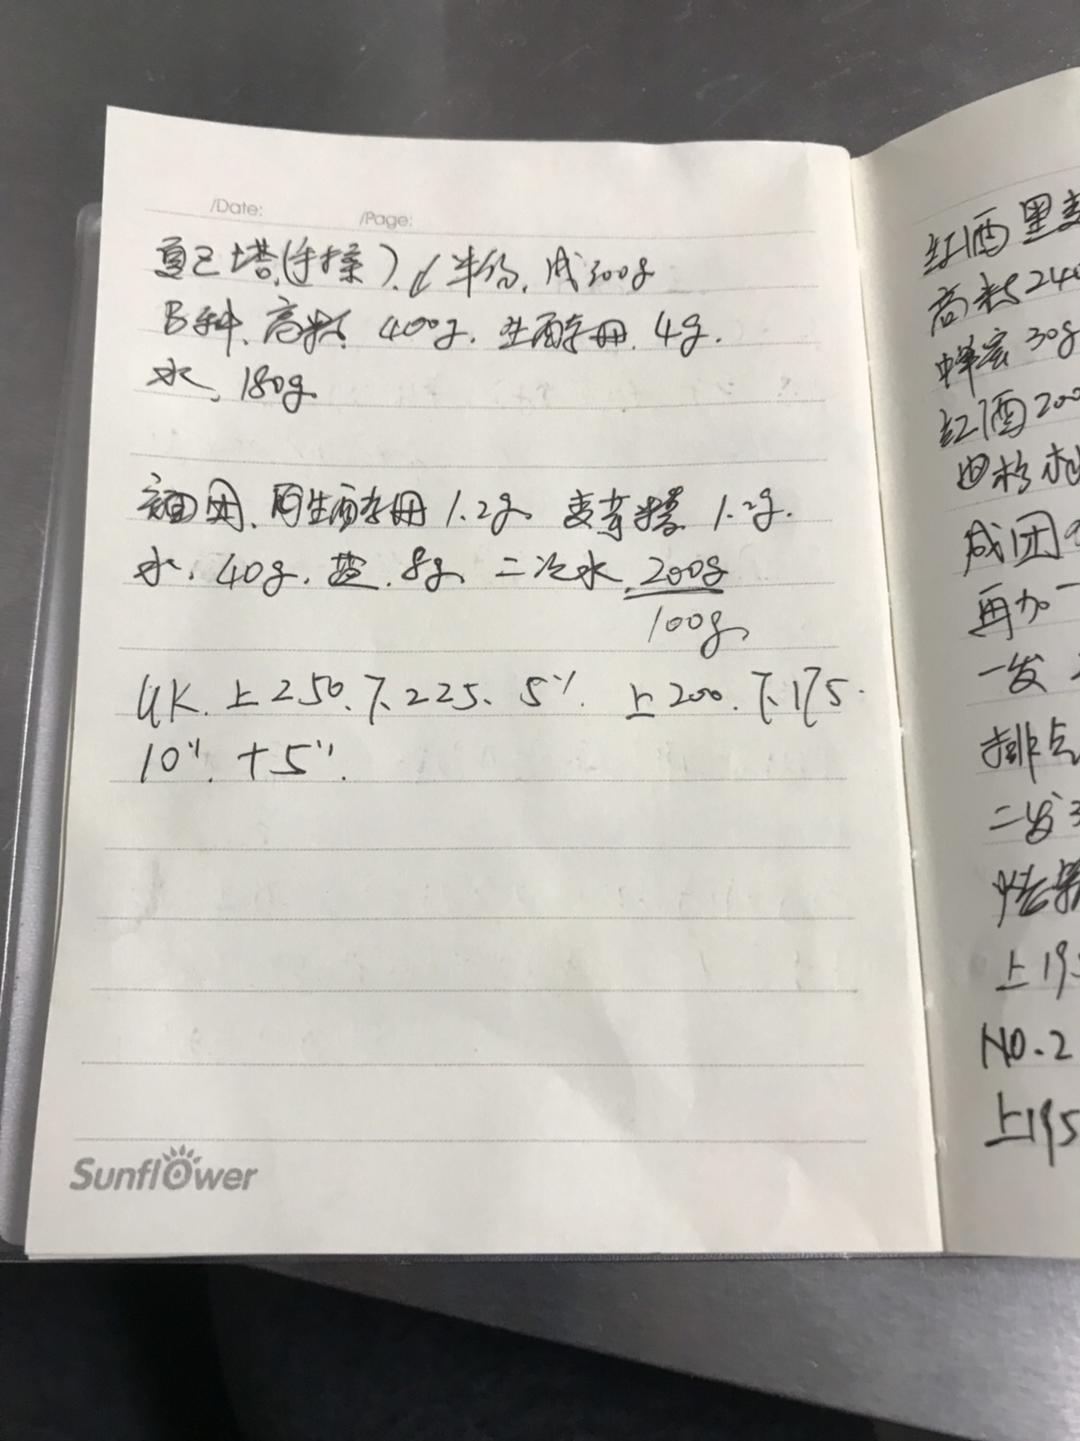 /Date: /Page:
夏巴塔(手揉).半份.成300g
B种.高粉.400g.生酵母.4g.
水.180g
面团.用生酵母1.2g.麦芽精1.2g.
水.40g.盐.8g.二次水.200g
100g
UK.上250.下225.5"上200.下175.
10".+5".
Sunflower
红酒黑麦
高粉240
蜂蜜30g
红酒200
成团
再加一
一发
排气
二发
上195
NO.2
上195